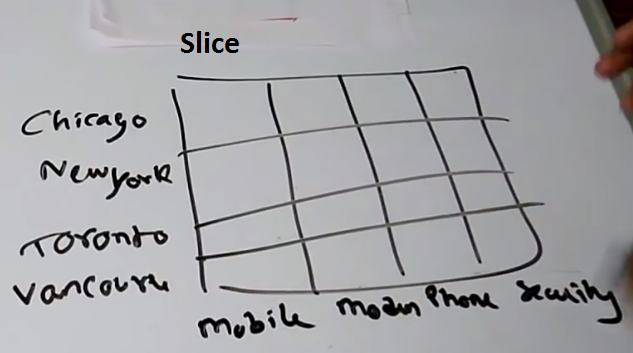 Slice
Chicago
Newyork
Toronto
Vancouver
Mobile Modem Phone Security